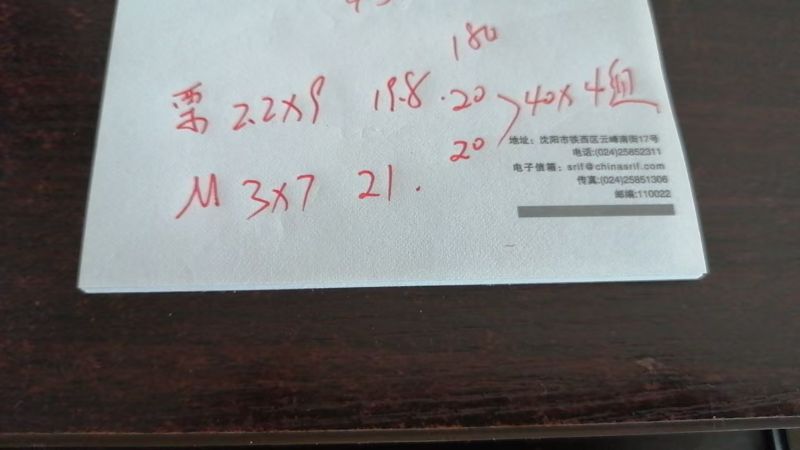 180
栗 2.2×9 19.8 .20 >40×4组
20
M 3×7 21.
地址：沈阳市铁西区云峰南街17号
电话:(024)25852311
电子信箱：srif@chinasrif.com
传真:(024)25851306
邮编:110022